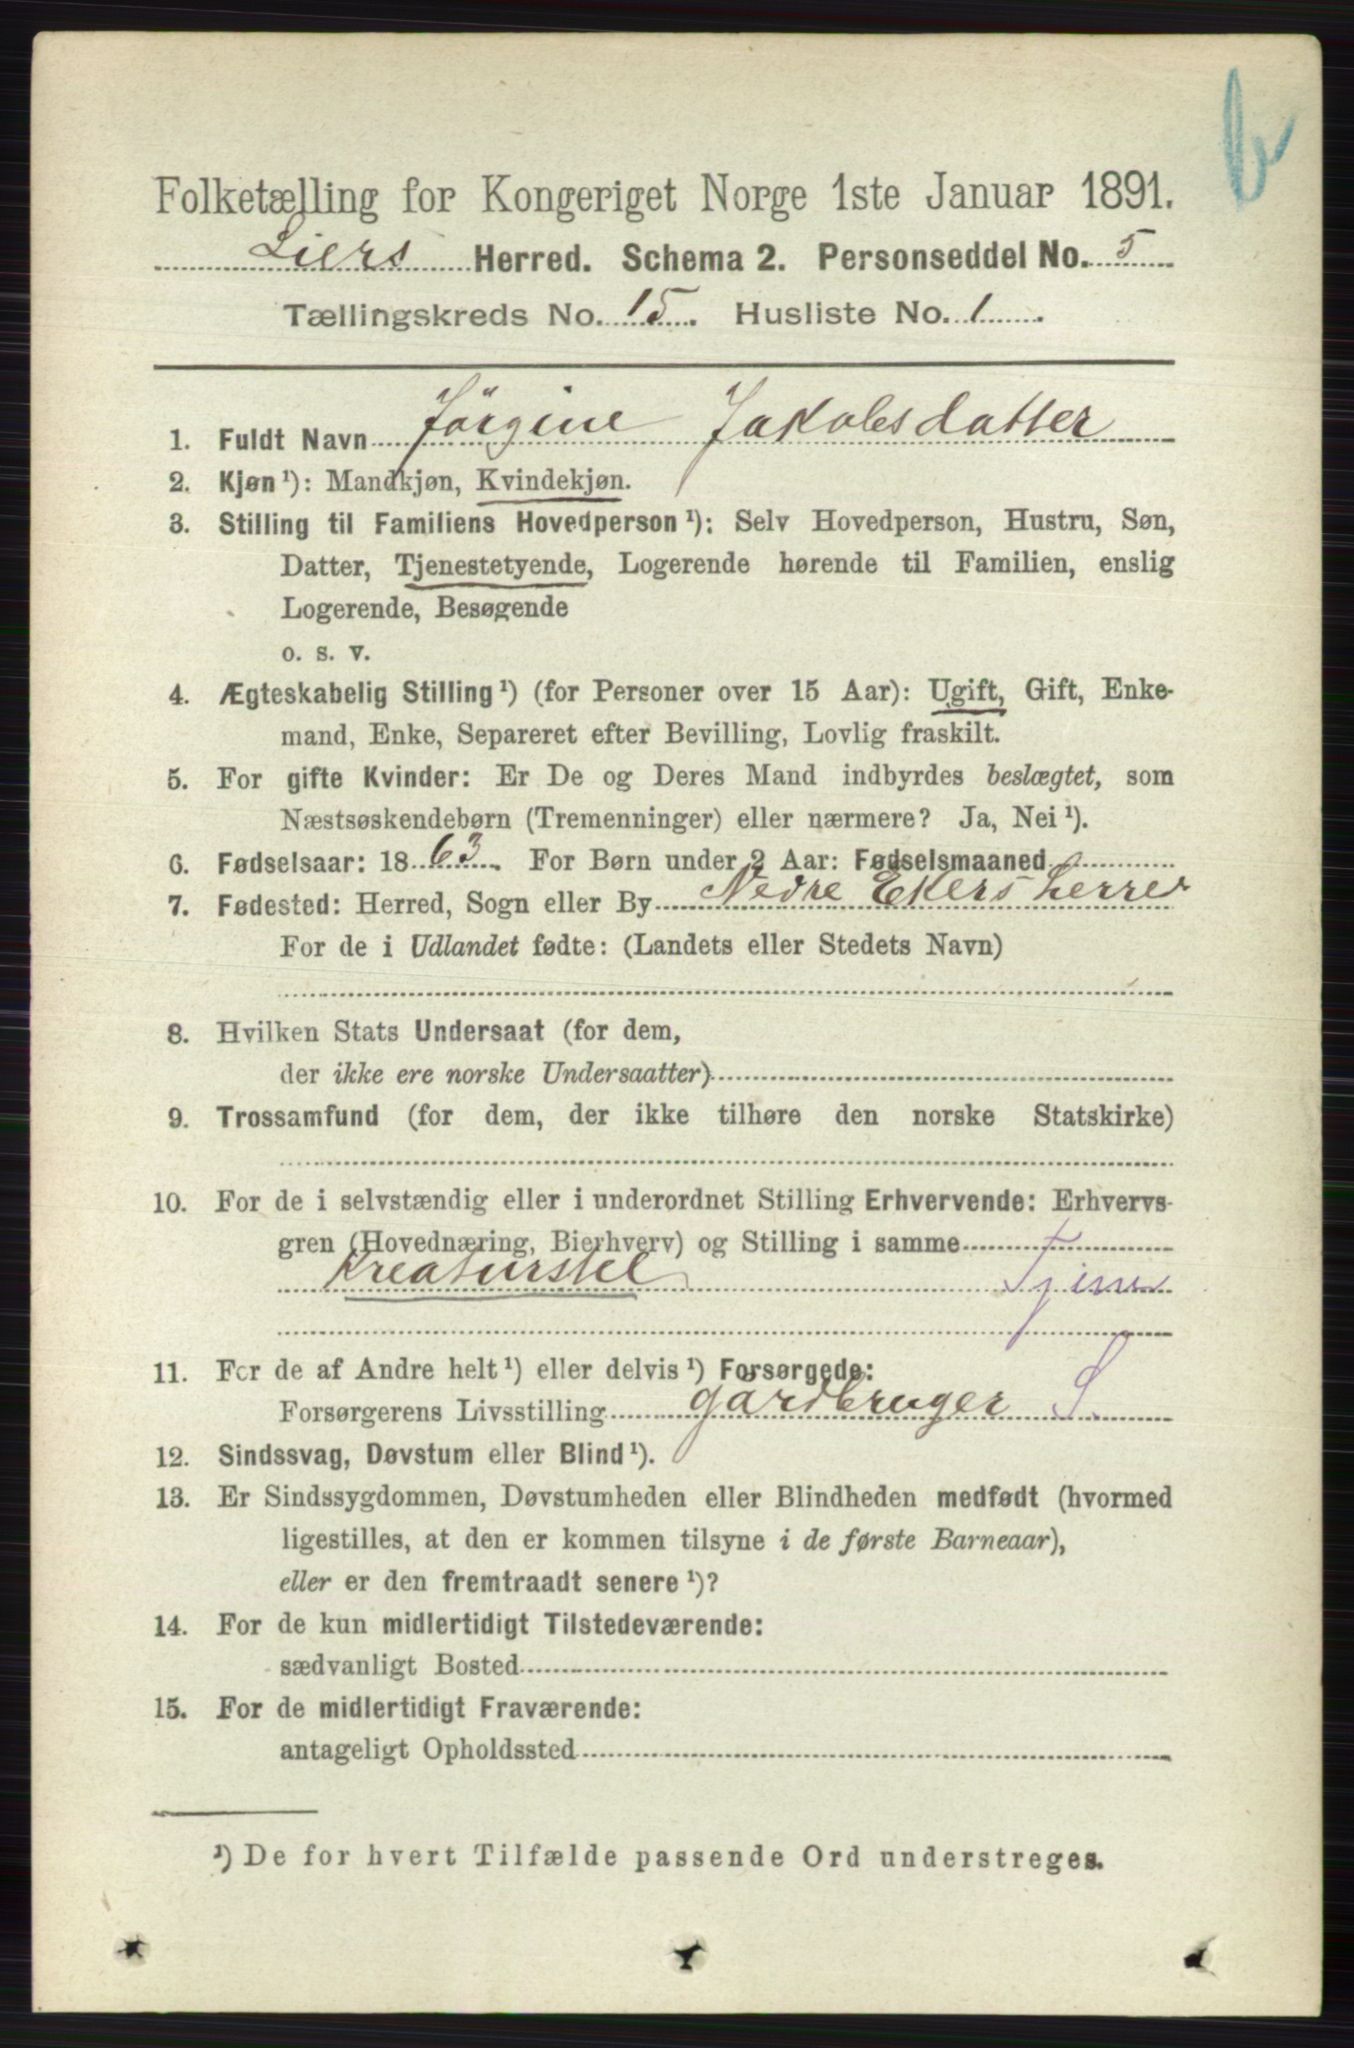 b
Folketælling for Kongeriget Norge 1ste Januar 1891.
Liers Herred. Schema 2. Personseddel No. 5
Tællingskreds No. 15. Husliste No. 1
1. Fuldt Navn Jörgine Jakobsdatter
2. Kjøn ¹): Mandkjøn, Kvindekjøn.
3. Stilling til Familiens Hovedperson ¹): Selv Hovedperson, Hustru, Søn,
Datter, Tjenestetyende, Logerende hørende til Familien, enslig
Logerende, Besøgende
o. s. v.
4. Ægteskabelig Stilling ¹) (for Personer over 15 Aar): Ugift, Gift, Enke-
mand, Enke, Separeret efter Bevilling, Lovlig fraskilt.
5. For gifte Kvinder: Er De og Deres Mand indbyrdes beslægtet, som
Næstsøskendebørn (Tremenninger) eller nærmere? Ja, Nei ¹).
6. Fødselsaar: 1863. For Børn under 2 Aar: Fødselsmaaned
7. Fødested: Herred, Sogn eller By Nedre Ekers herre
For de i Udlandet fødte: (Landets eller Stedets Navn)
8. Hvilken Stats Undersaat (for dem,
der ikke ere norske Undersaatter)
9. Trossamfund (for dem, der ikke tilhøre den norske Statskirke)
10. For de i selvstændig eller i underordnet Stilling Erhvervende: Erhvervs-
gren (Hovednæring, Bierhverv) og Stilling i samme
Kreaturstel Tjener
11. For de af Andre helt ¹) eller delvis ¹) Forsørgede:
Forsørgerens Livsstilling gårdbruger S.
12. Sindssvag, Døvstum eller Blind ¹).
13. Er Sindssygdommen, Døvstumheden eller Blindheden medfødt (hvormed
ligestilles, at den er kommen tilsyne i de første Barneaar),
eller er den fremtraadt senere ¹)?
14. For de kun midlertidigt Tilstedeværende:
sædvanligt Bosted
15. For de midlertidigt Fraværende:
antageligt Opholdssted
¹) De for hvert Tilfælde passende Ord understreges.